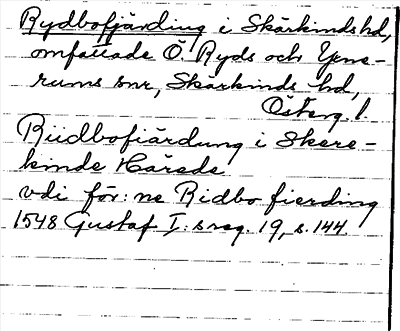 Rydbofjärding i Skärkinds hd,
omfattade Ö. Ryds och Yxne-
rums snr, Skärkinds hd,
Österg. l.
Riidbofiärdung i Skere-
kinde Härede
vdi för:ne Ridbo fierding
1548 Gustaf I:s reg. 19, s. 144.